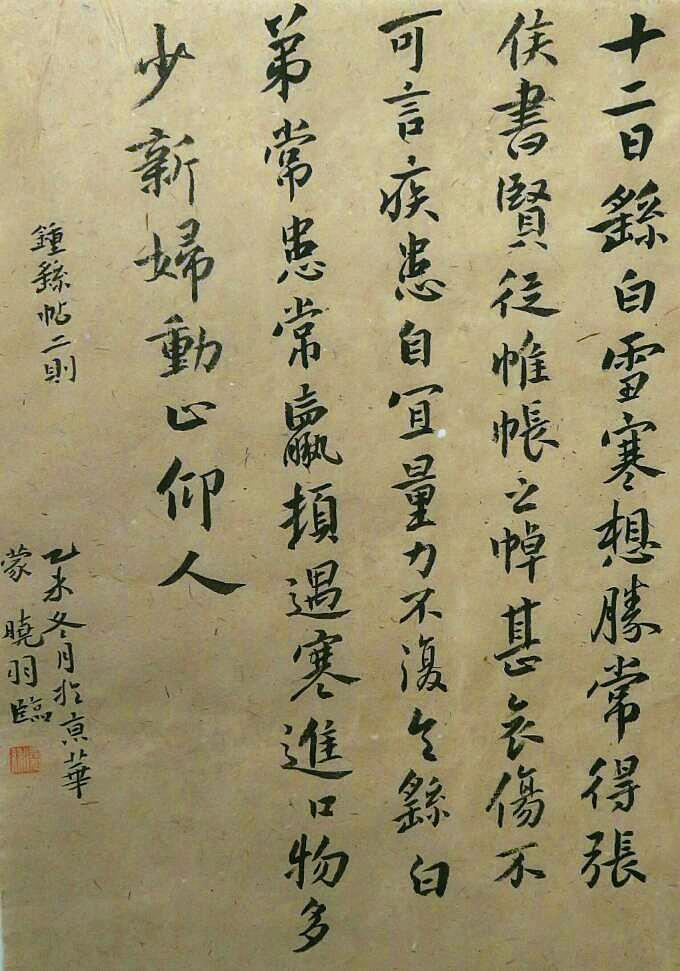 十二日繇白雪寒想勝常得張
侯書賢從帷帳之悼甚哀傷不
可言疾患自宜量力不復具繇白
弟常患常羸頓遇寒進口物多
少新婦動止仰人
鍾繇帖二則
乙未冬月於京華
蒙曉羽臨